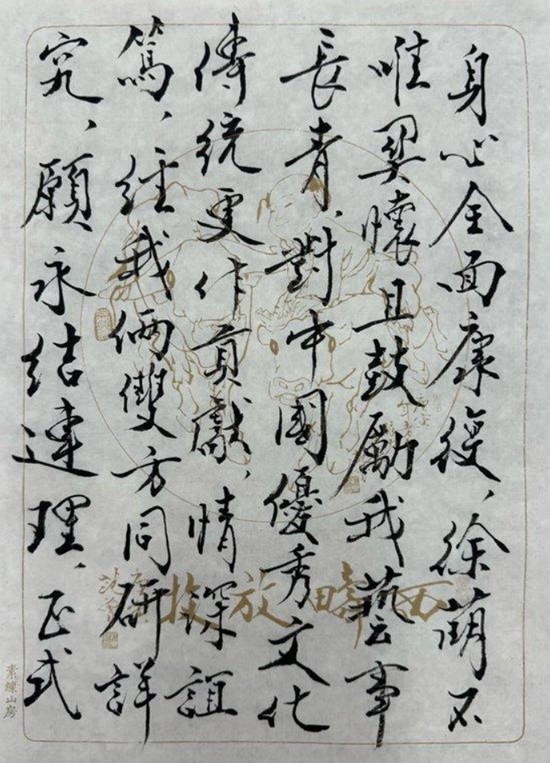 身心全面康復，徐萌不
唯關懷且鼓勵我藝事
長青，對中國優秀文化
傳統更作貢獻，情深誼
篤，經我倆雙方同研詳
究，願永结連理，正式
西疇放牧
素練山房